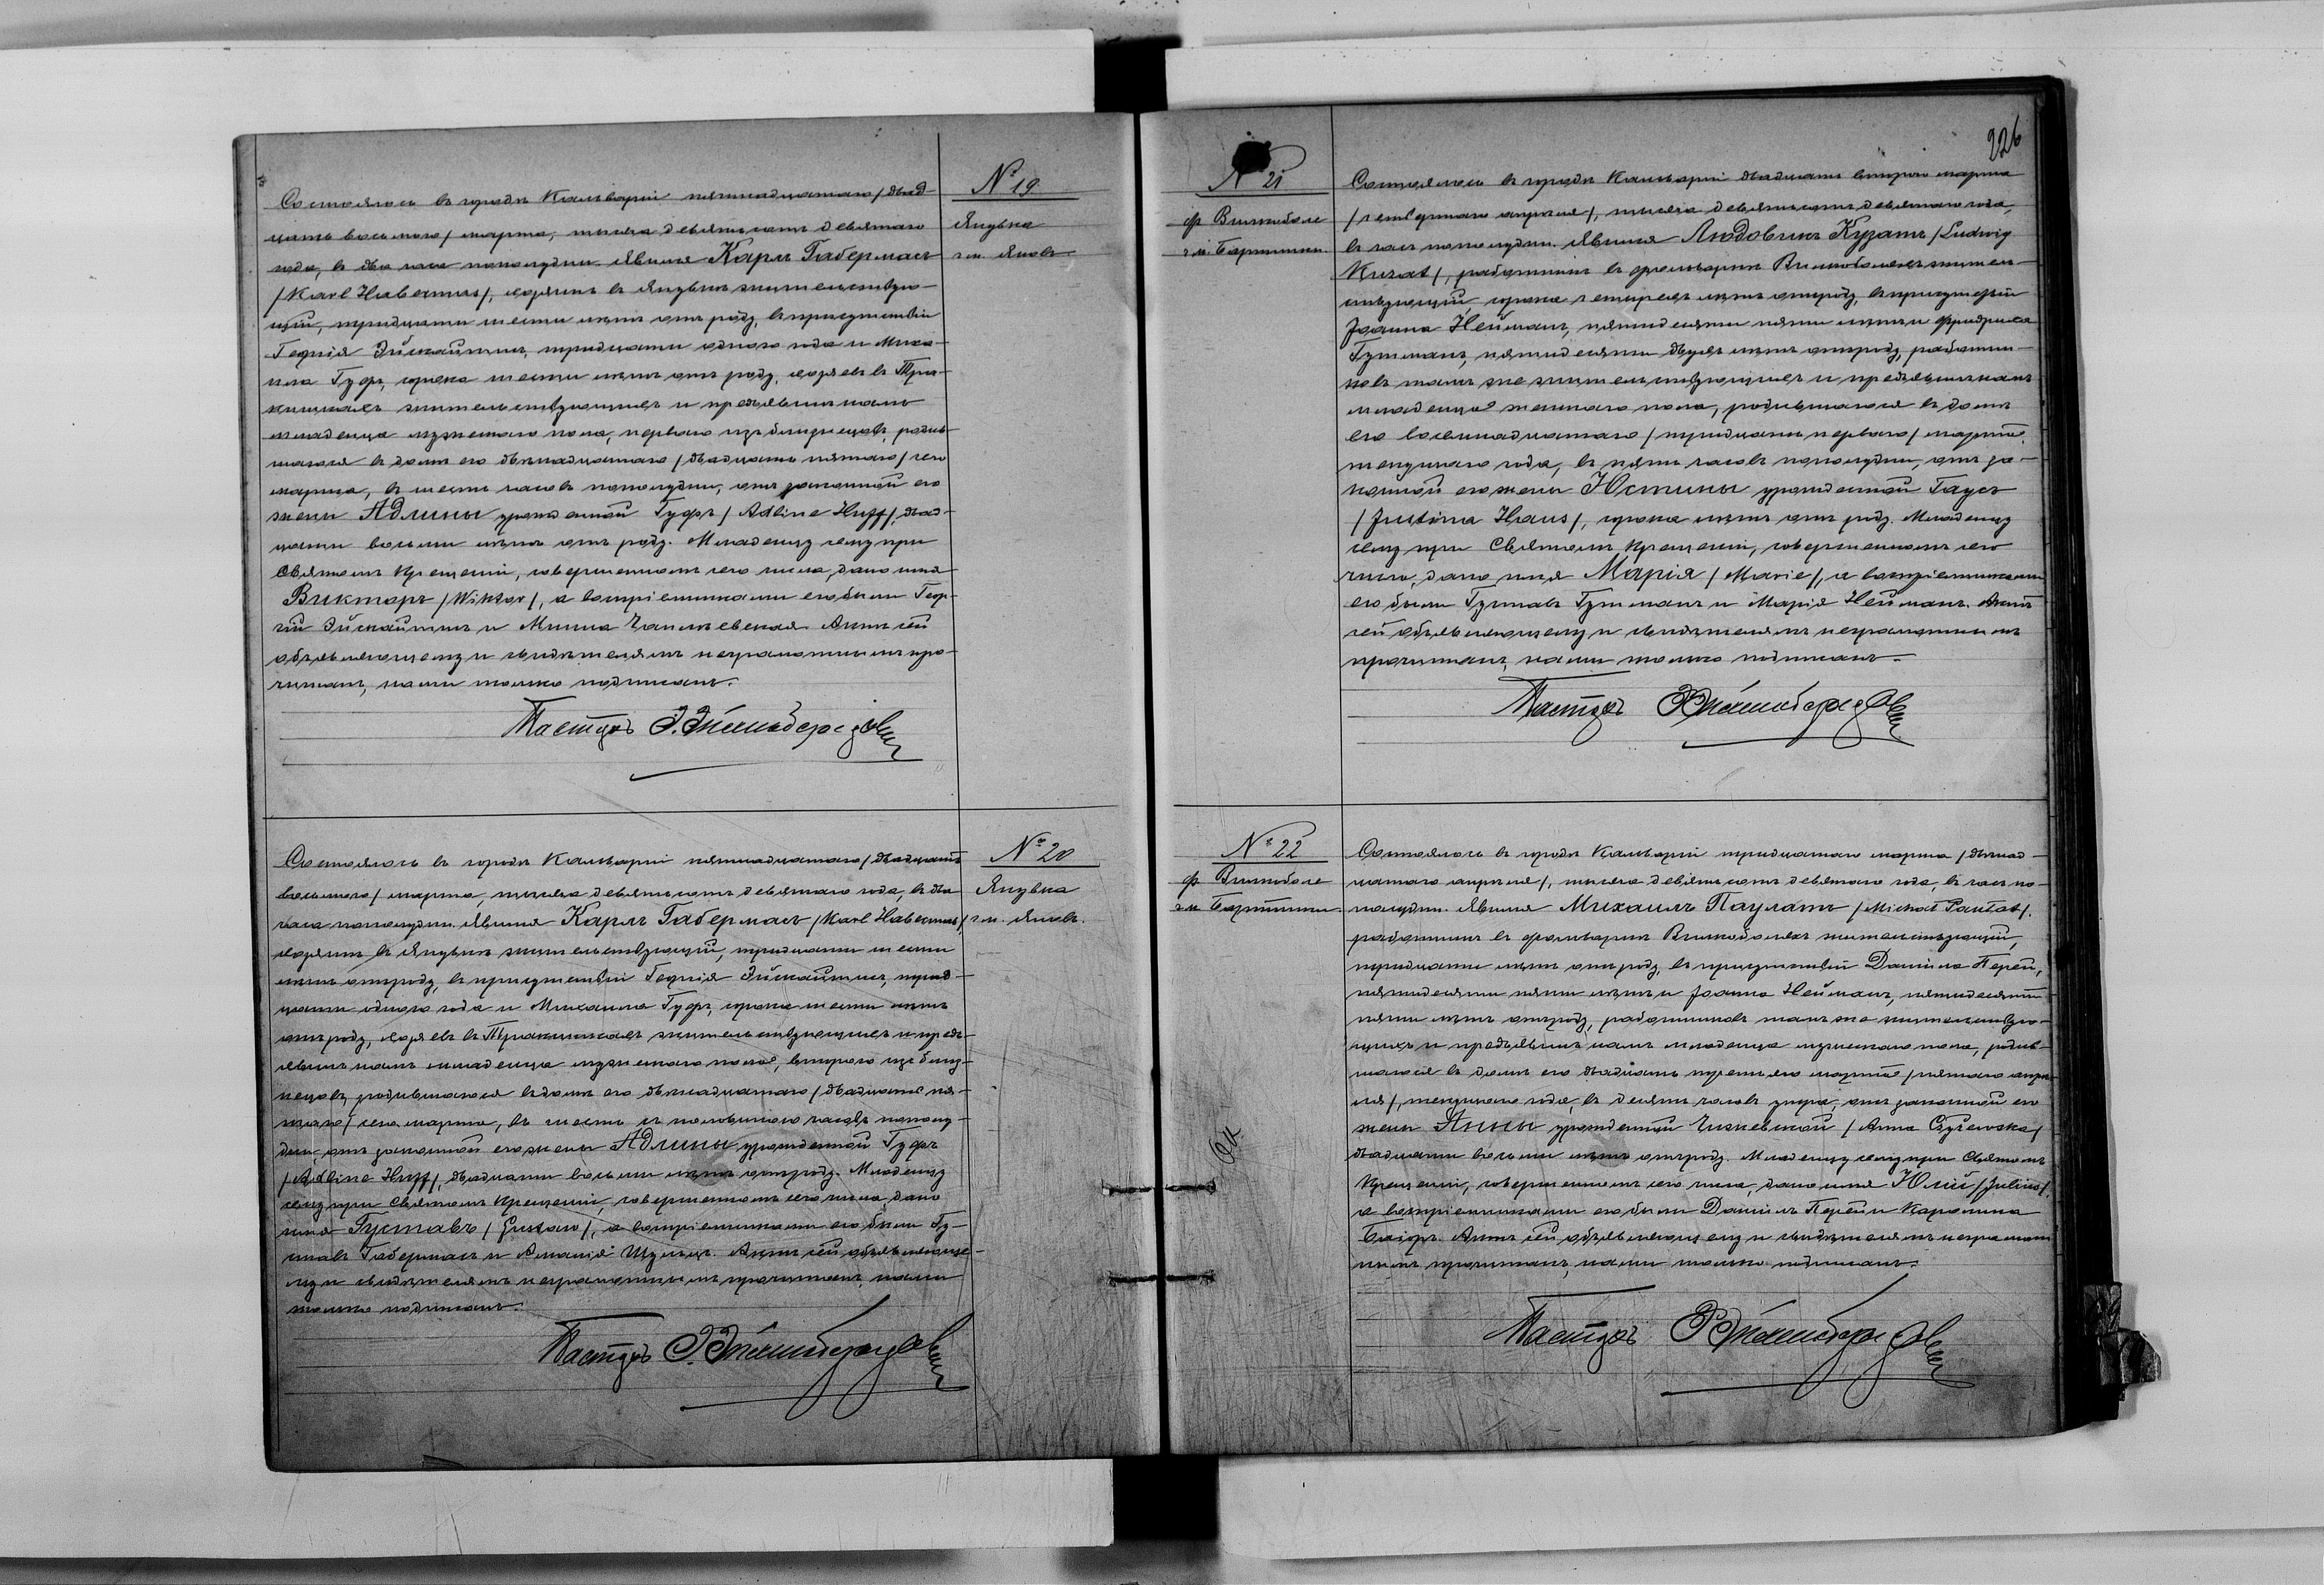 № 19
Янувка
гм. Яновъ
Состоялось въ городѣ Кальваріи пятнадцатаго /двад-
цать восьмого/ марта, тысяча девятьсотъ девятаго
года, въ два часа пополудни. Явился Карлъ Габермасъ
/Karl Habermas/, въ Янувкѣ жительствую-
щій, тридцати шести лѣтъ отъ роду, въ присутствіи
тридцати одного года и Миха-
ила Гуфъ, сорока шести лѣтъ отъ роду,
жительствующихъ и предъявилъ намъ
младенца мужескаго пола, перваго изъ близнецовъ, родив-
шагося въ домѣ его двѣнадцатаго /двадцать пятаго/ сего
марта, въ шесть часовъ пополудни, отъ законной его
жены Адлины урожденной Гуфъ /Adline Huff/, двад-
цати восьми лѣтъ отъ роду. Младенцу сему при
Святомъ Крещеніи, совершенномъ сего числа, дано имя
Викторъ /Wiktor/, а воспріемниками его были Геор-
гій и Мина Актъ сей
объявляющему и свидѣтелямъ неграмотнымъ про-
читанъ, нами только подписанъ.
Пасторъ
№ 20
Янувка
гм. Яновъ.
Состоялось въ городѣ Кальваріи пятнадцатаго /двадцать
восьмого/ марта, тысяча девятьсотъ девятаго года, въ два
часа пополудни. Явился Карлъ Габермасъ /Karl Habermas/,
въ Янувкѣ жительствующій, тридцати шести
лѣтъ отъ роду, въ присутствіи трид-
цати одного года и Михаила Гуфъ, сорока шести лѣтъ
отъ роду, жительствующихъ и предъ-
явилъ намъ младенца мужескаго пола, второго изъ близ-
нецовъ, родившагося въ домѣ его двѣнадцатаго /двадцать пя-
таго/ сего марта, въ шесть съ половиною часовъ пополу-
дни, отъ законной его жены Адлины урожденной Гуфъ
/Adline Huff/, двадцати восьми лѣтъ отъ роду. Младенцу
сему при Святомъ Крещеніи, совершенномъ сего числа, дано
имя Густавъ /Gustaw/, а воспріемниками его были Гу-
ставъ Габермасъ и Амалія Шульцъ. Актъ сей объявляюще-
му и свидѣтелямъ неграмотнымъ прочитанъ, нами
только подписанъ.
Пасторъ
226
№ 21
ф. Вилкоболе
гм. Бартники
Состоялось въ городѣ Кальваріи двадцать второго марта
/четвертаго апрѣля/, тысяча девятьсотъ девятаго года,
въ часъ пополудни. Явился Людовикъ Кузатъ /Ludwig
Kuzat/, работникъ въ фольваркѣ Вилкоболяхъ житель-
ствующій, сорока четырехъ лѣтъ отъ роду, въ присутствіи
Іоанна Нейманъ, пятидесяти пяти лѣтъ и Фридриха
Гутманъ, пятидесяти двухъ лѣтъ отъ роду, работни-
ковъ тамъ же жительствующихъ и предъявилъ намъ
младенца женскаго пола, родившагося въ домѣ
его восемнадцатаго /тридцать перваго/ марта
текущаго года, въ пять часовъ пополудни, отъ за-
конной его жены Юстины урожденной Гаусъ
/Justina Haus/, сорока лѣтъ отъ роду. Младенцу
сему при Святомъ Крещеніи, совершенномъ сего
числа, дано имя Марія /Marie/, а воспріемниками
его были Густавъ Гутманъ и Марія Нейманъ. Актъ
сей объявляющему и свидѣтелямъ неграмотнымъ
прочитанъ, нами только подписанъ.
Пасторъ
№ 22
ф. Вилкоболе
гм. Бартники.
Состоялось въ городѣ Кальваріи тридцатаго марта /двѣнад-
цатаго апрѣля/, тысяча девятьсотъ девятаго года, въ часъ по-
полудни. Явился Михаилъ Паулатъ /Michał Paulat/.
работникъ въ фольваркѣ Вилкоболяхъ жительствующій,
тридцати лѣтъ отъ роду, въ присутствіи Даніила Перей,
пятидесяти пяти лѣтъ и Іоанна Нейманъ, пятидесяти
пяти лѣтъ отъ роду, работниковъ тамъ же жительствую-
щихъ и предъявилъ намъ младенца мужескаго пола, родив-
шагося въ домѣ его двадцать третьяго марта /пятаго апрѣ-
ля/, текущаго года, въ десять часовъ утра, отъ законной его
жены Анны урожденной /Anna
двадцати восьми лѣтъ отъ роду. Младенцу сему при Святомъ
Крещеніи, совершенномъ сего числа, дано имя Юлій /Julius/,
а воспріемниками его были Даніилъ Перей и Каролина
Актъ сей объявляющему и свидѣтелямъ неграмот-
нымъ прочитанъ, нами только подписанъ.
Пасторъ